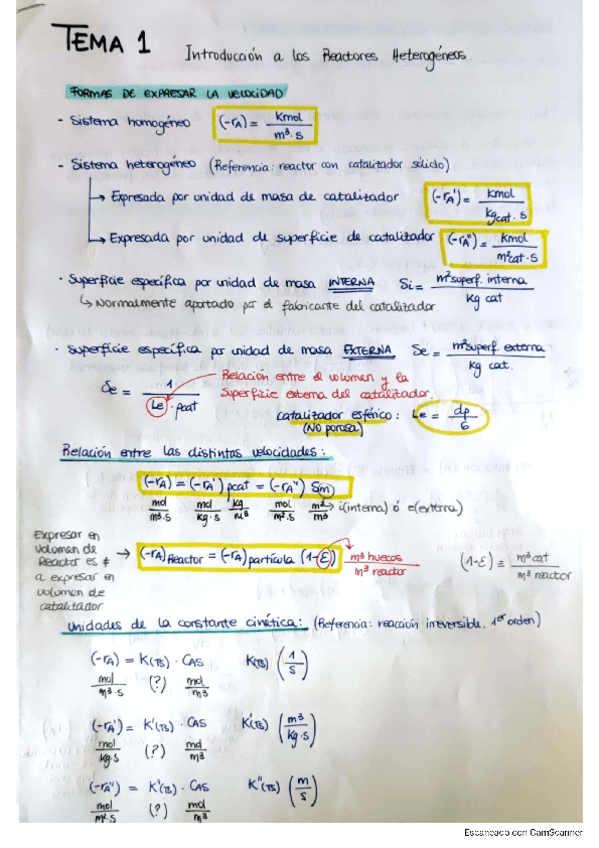 TEMA 1 Introducción a los Reactores Heterogéneos
FORMAS DE EXPRESAR LA VELOCIDAD
- Sistema homogéneo (-rA) = Kmol / m³·s
- Sistema heterogéneo (Referencia: reactor con catalizador sólido)
→ Expresada por unidad de masa de catalizador (-rA') = kmol / kgcat·s
→ Expresada por unidad de superficie de catalizador (-rA'') = Kmol / m²cat·s
- Superficie específica por unidad de masa INTERNA Si = m² superf. interna / Kg cat
↳ Normalmente aportado por el fabricante del catalizador.
- Superficie específica por unidad de masa EXTERNA Se = m² superf. externa / kg cat.
Se = 1 / Le · ρcat
Relación entre el volumen y la
superficie externa del catalizador.
catalizador esférico: Le = dp / 6
(NO porosa)
Relación entre las distintas velocidades:
(-rA) = (-rA') ρcat = (-rA'') Sm
mol / m³·s mol / kg·s kg / m³ mol / m²·s m² / m³ → i(interna) ó e(externa)
Expresar en
volumen de
Reactor es ≠
a expresar en
volumen de
catalizador
→ (-rA)Reactor = (-rA)partícula (1-ε) m³ huecos / m³ reactor (1-ε) = m³ cat / m³ reactor
unidades de la constante cinética: (Referencia: reacción irreversible, 1er orden)
(-rA) = K(Ts) · CAS K(Ts) (1 / s)
mol / m³·s (?) mol / m³
(-rA') = K'(Ts) · CAS K'(Ts) (m³ / kg·s)
mol / kg·s (?) mol / m³
(-rA'') = K''(Ts) · CAS K''(Ts) (m / s)
mol / m²·s (?) mol / m³
Escaneado con CamScanner